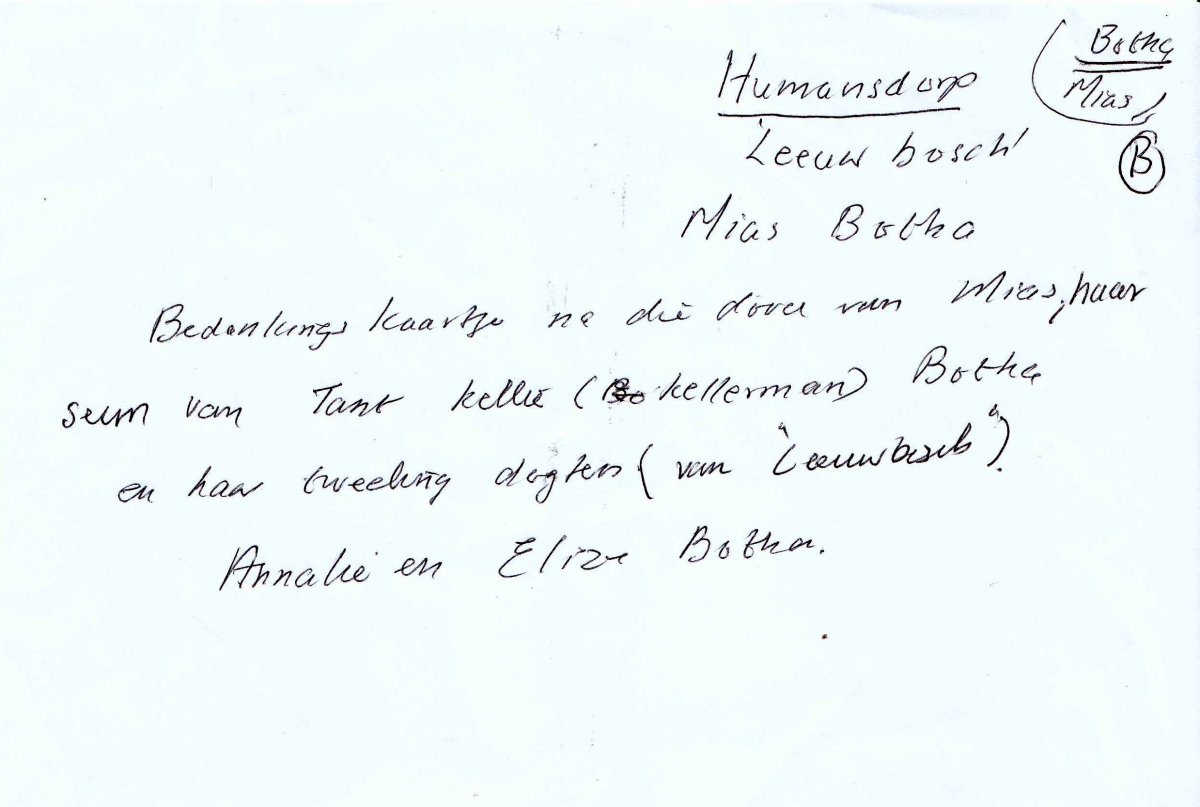 Botha
Mias
B
Humansdorp
'Leeuw bosch'
Mias Botha
Bedankings kaartjie na die dood van Mias, haar
seun van Tant Kellie (Kellerman) Botha
en haar tweeling dogters (van "Leeuwbosch").
Annalie en Elize Botha.